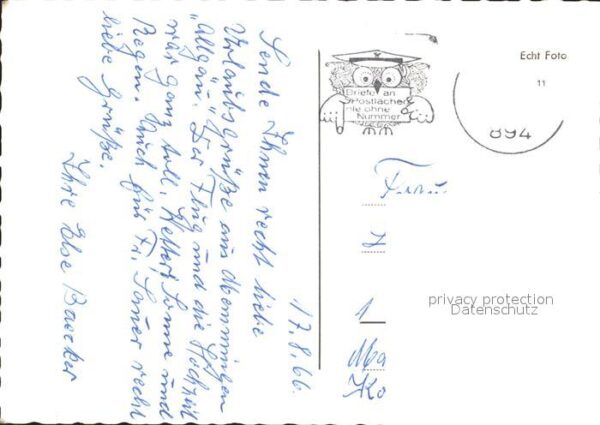 17.8.66.
Sende Ihnen recht liebe
Urlaubsgrüße aus Memmingen
"Allgäu. Der Flug und die Hochzeit
war ganz toll, Wetter: Sonne und
Regen. Auch für Fr. Sauer recht
liebe Grüße.
Ihre Else Baecker
Briefe an
Postfächer
nie ohne
Nummer
Echt Foto
11
894
Frau
1
Ma
Ko
privacy protection
Datenschutz